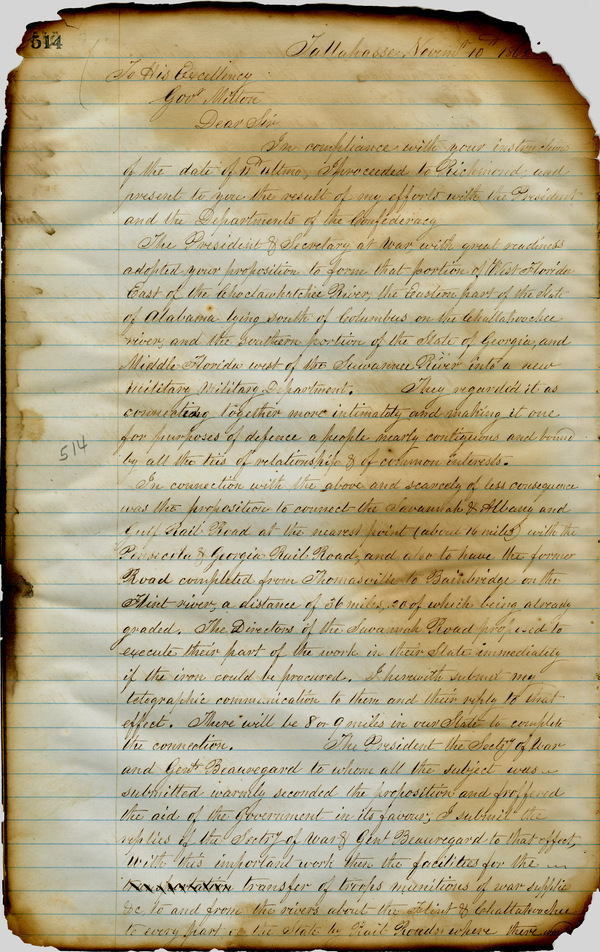 514
Tallahassee Novemr 10th 186
To His Excellency
Govr Milton
Dear Sir
In compliance with your instruction
of the date of 11th ultmo, I proceeded to Richmond, and
present to you the result of my efforts with the President
and the Departments of the Confederacy
The President & Secretary at War with great readiness
adopted your proposition to form that portion of West Florida
East of the Choctawhatchee River, the Eastern part of the State
of Alabama lying south of Columbus on the Chattahoochee
river, and the southern portion of the State of Georgia, and
Middle Florida west of the Suwannee River into a new
Military Department. They regarded it as
connecting together more intimately and making it one
for purposes of defence a people nearly contiguous and bound
by all the ties of relationship & of common interests.
In connection with the above and scarcely of less consequence
was the proposition to connect the Savannah & Albany and
Gulf Rail Road at the nearest point (about 16 miles) with the
Pensicola & Georgia Rail Road, and also to have the former
Road completed from Thomasville to Bainbridge on the
Flint river, a distance of 36 miles, 20 of which being already
graded. The Directors of the Savannah Road proposed to
execute their part of the work in their State immediately
if the iron could be procured. I herewith submit my
telegraphic communication to them and their reply to that
effect. There will be 8 or 9 miles in our State to complete
the connection. The President the Secty of War
and Genl Beauregard to whom all the subject was
submitted warmly seconded the proposition and proffered
the aid of the Government in its favour; I submit the
replies of the Secty of War & Genl Beauregard to that effect,
With this important work then the facilities for the
transfer of troops munitions of war supplies
&c to and from the rivers about the Flint & Chattahoochee
to every part of the State by Rail Roads where there
514